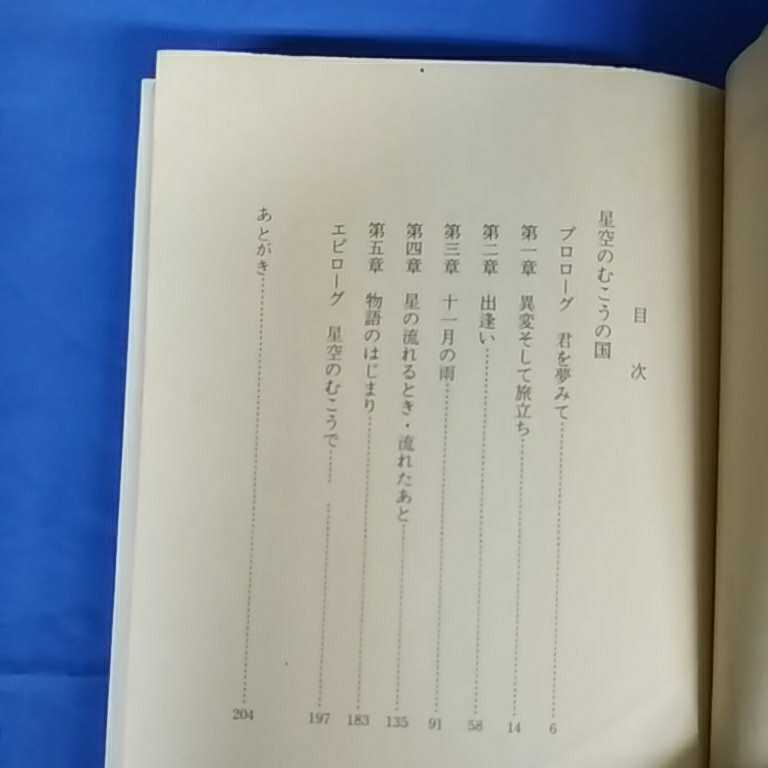 目次
星空のむこうの国
プロローグ　君を夢みて……………… 6
第一章　異変そして旅立ち……………… 14
第二章　出逢い……………… 58
第三章　十一月の雨……………… 91
第四章　星の流れるとき・流れたあと……………… 135
第五章　物語のはじまり……………… 183
エピローグ　星空のむこうで…… ……………… 197
あとがき……………… 204